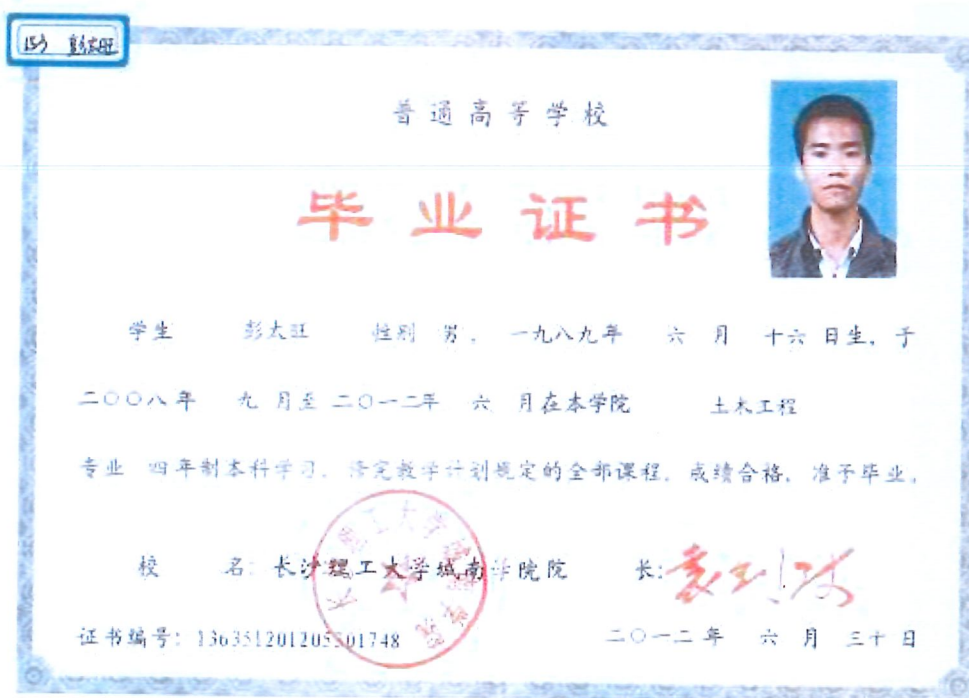 153 彭太旺
普通高等学校
毕业证书
学生 彭太旺 性别 男，一九八九年 六 月 十六 日生，于
二〇〇八年 九 月至 二〇一二年 六 月在本学院 土木工程
专业 四年制本科学习，修完教学计划规定的全部课程，成绩合格，准予毕业。
校 名：长沙理工大学城南学院 院 长：
证书编号： 二〇一二年 六 月 三十 日